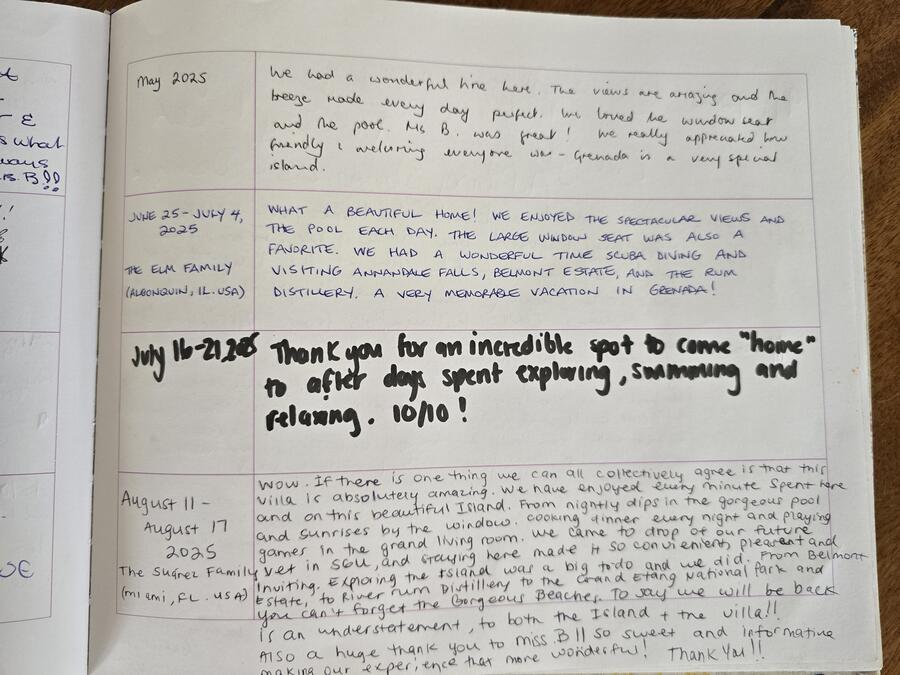 t
-
r &
s what
ways
s. B!!
!
k
May 2025
We had a wonderful time here. The views are amazing and the
breeze made every day perfect. We loved the window seat
and the pool. Ms B. was great! We really appreciated how
friendly & welcoming everyone was - Grenada is a very special
island.
JUNE 25 - JULY 4,
2025
THE ELM FAMILY
(ALGONQUIN, IL. USA)
WHAT A BEAUTIFUL HOME! WE ENJOYED THE SPECTACULAR VIEWS AND
THE POOL EACH DAY. THE LARGE WINDOW SEAT WAS ALSO A
FAVORITE. WE HAD A WONDERFUL TIME SCUBA DIVING AND
VISITING ANNANDALE FALLS, BELMONT ESTATE, AND THE RUM
DISTILLERY. A VERY MEMORABLE VACATION IN GRENADA!
July 16-21, 2025
Thank you for an incredible spot to come "home"
to after days spent exploring, swimming and
relaxing. 10/10!
August 11 -
August 17
2025
The Suárez Family
(Miami, FL. USA)
WOW. If there is one thing we can all collectively agree is that this
villa is absolutely amazing. We have enjoyed every minute spent here
and on this beautiful Island. From nightly dips in the gorgeous pool
and sunrises by the window. Cooking dinner every night and playing
games in the grand living room. We came to drop of our future
vet in SGU, and staying here made it so convenient, pleasent and
inviting. Exploring the Island was a big todo and we did. From Belmont
Estate, to River rum Distillery to the Grand Etang National Park and
you can't forget the Gorgeous Beaches. To say we will be back
is an understatement, to both the Island + the villa!!
Also a huge thank you to miss B!! so sweet and informative
making our experience that more wonderful! Thank You!!